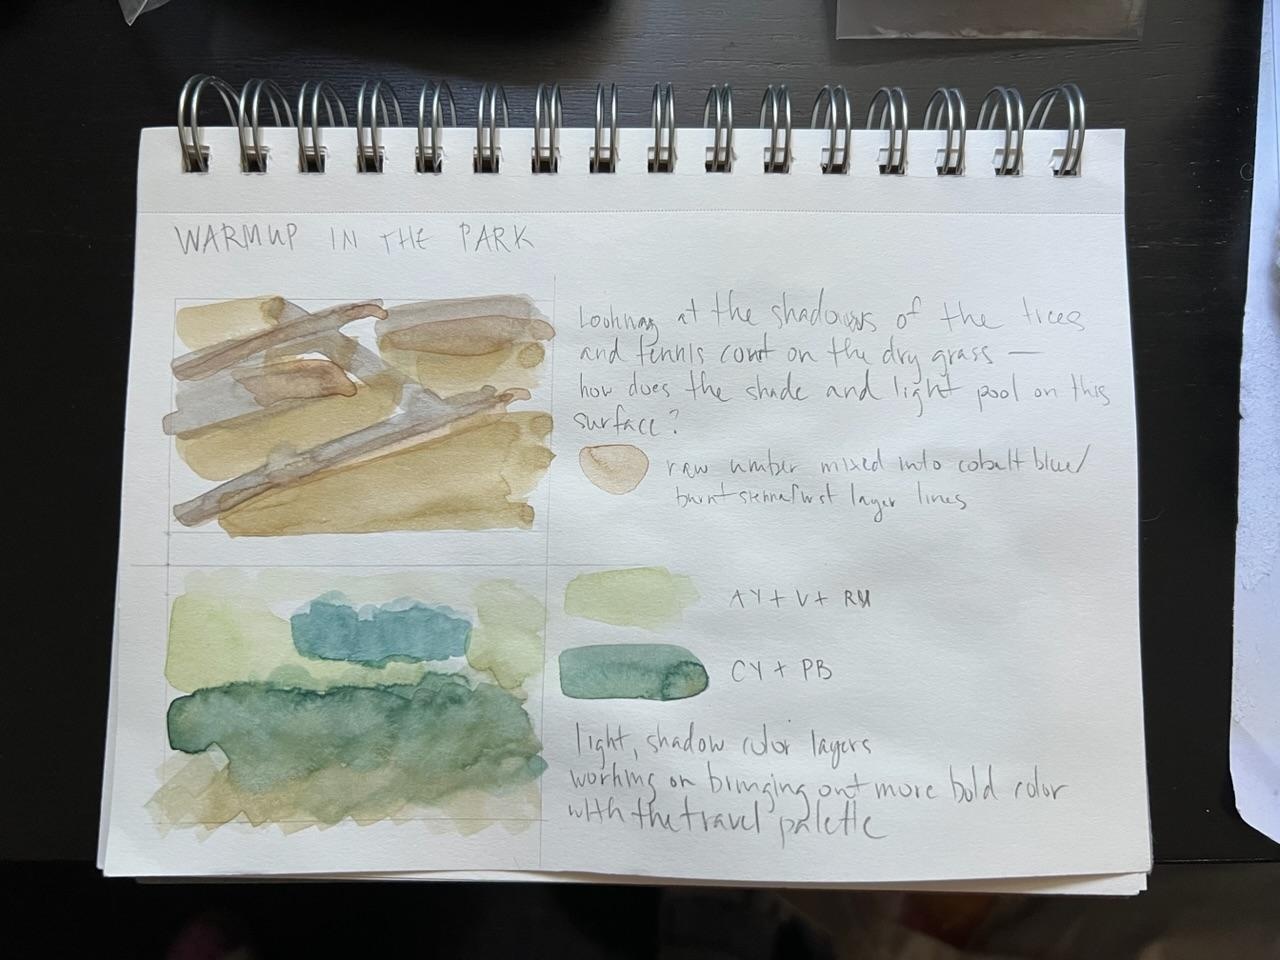 WARMUP IN THE PARK
Looking at the shadows of the trees
and tennis court on the dry grass —
how does the shade and light pool on this
surface?
raw umber mixed into cobalt blue/
burnt sienna first layer lines
AY + V + RU
CY + PB
light, shadow color layers
working on bringing out more bold color
with the travel palette